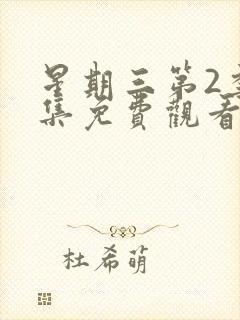 星期三第2季
集免費觀看
杜希萌